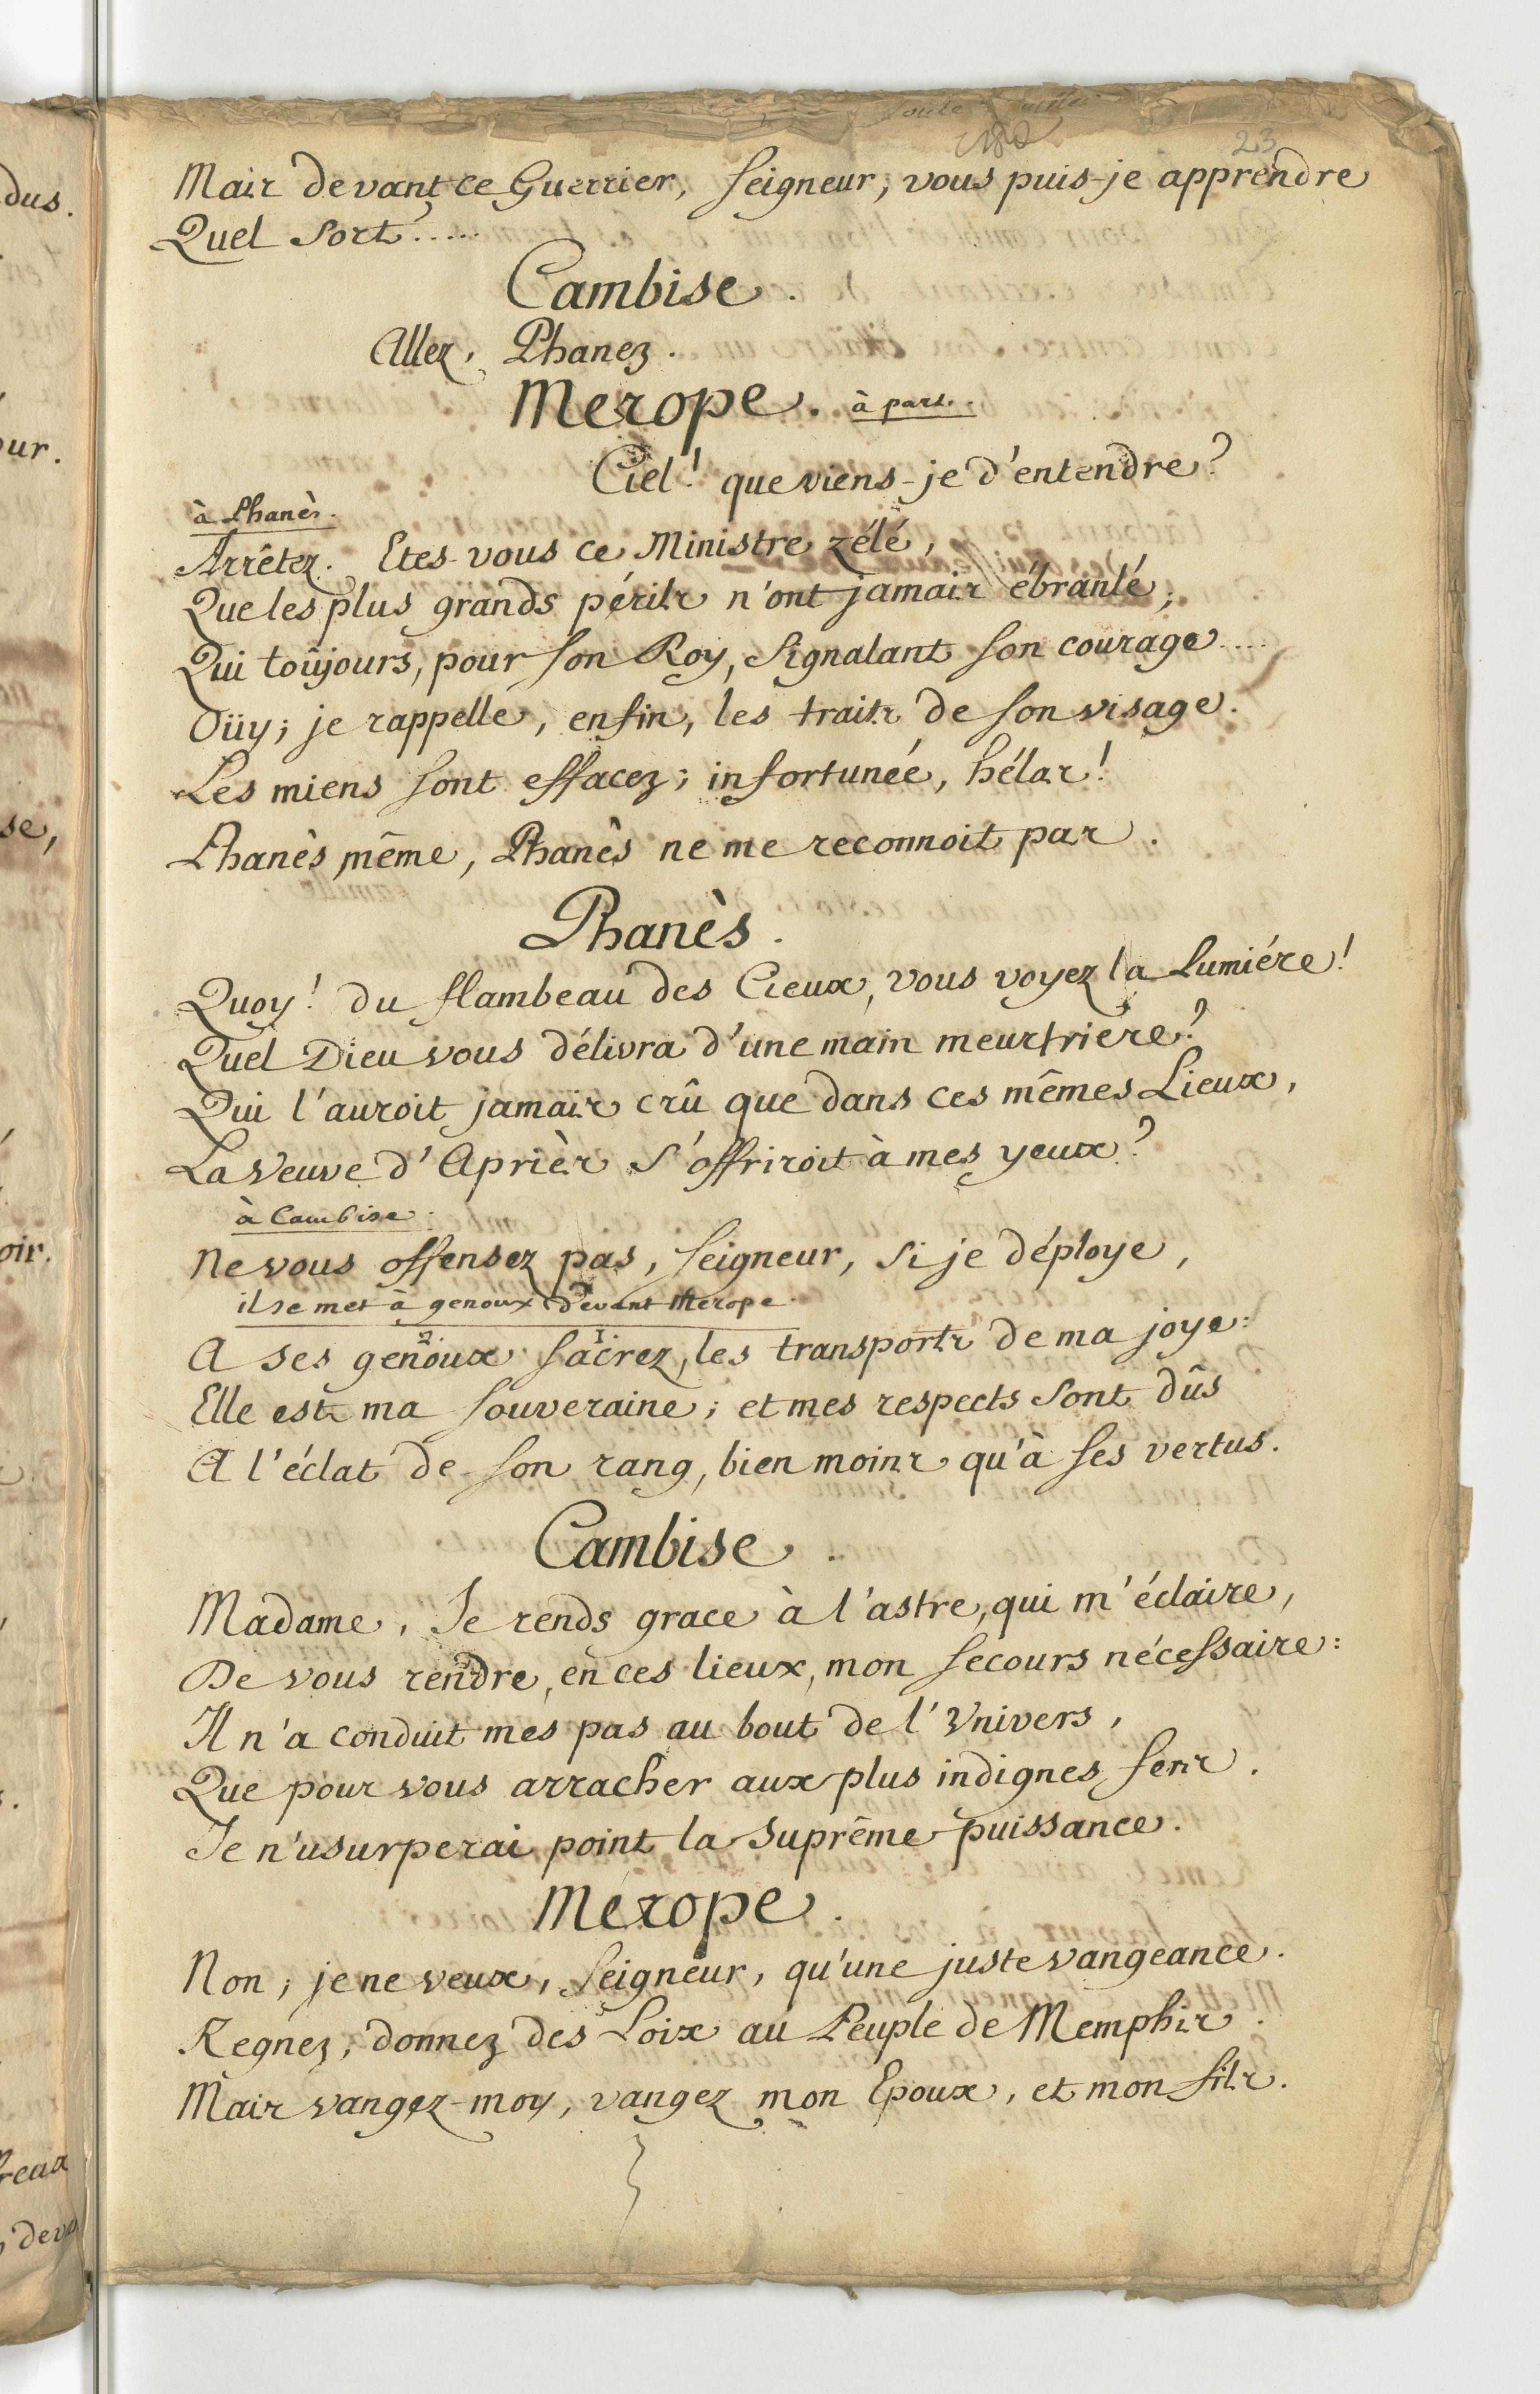 23
Mais devant ce Guerrier, Seigneur, vous puis-je apprendre
Quel sort.....
Cambise.
Allez, Phanez.
Merope. à part.
Ciel! que viens-je d'entendre?
à Phanès.
Arrêtez. Etes-vous ce Ministre zélé,
Que les plus grands périls n'ont jamais ébranlé;
Qui toûjours, pour son Roy, signalant son courage.....
Oüy; je rappelle, enfin, les traits de son visage.
Les miens sont effacez; infortunée, hélas!
Phanès même, Phanès ne me reconnoit pas.
Phanès.
Quoy! du flambeau des Cieux, vous voyez la lumiére!
Quel Dieu vous délivra d'une main meurtriére?
Qui l'auroit jamais crû que dans ces mêmes Lieux,
La Veuve d'Apriès s'offriroit à mes yeux?
à Cambise.
Ne vous offensez pas, Seigneur, si je déploye,
il se met à genoux devant Merope.
A ses genoux sacrez, les transports de ma joye:
Elle est ma souveraine; et mes respects sont dûs
A l'éclat de son rang, bien moins qu'à ses vertus.
Cambise.
Madame, Je rends grace à l'astre, qui m'éclaire,
De vous rendre, en ces lieux, mon secours nécessaire:
Il n'a conduit mes pas au bout de l'Vnivers,
Que pour vous arracher aux plus indignes fers.
Je n'usurperai point la suprême puissance.
Mérope.
Non; je ne veux, Seigneur, qu'une juste vangeance.
Regnez, donnez des Loix au Peuple de Memphis.
Mais vangez-moy, vangez mon Epoux, et mon fils.